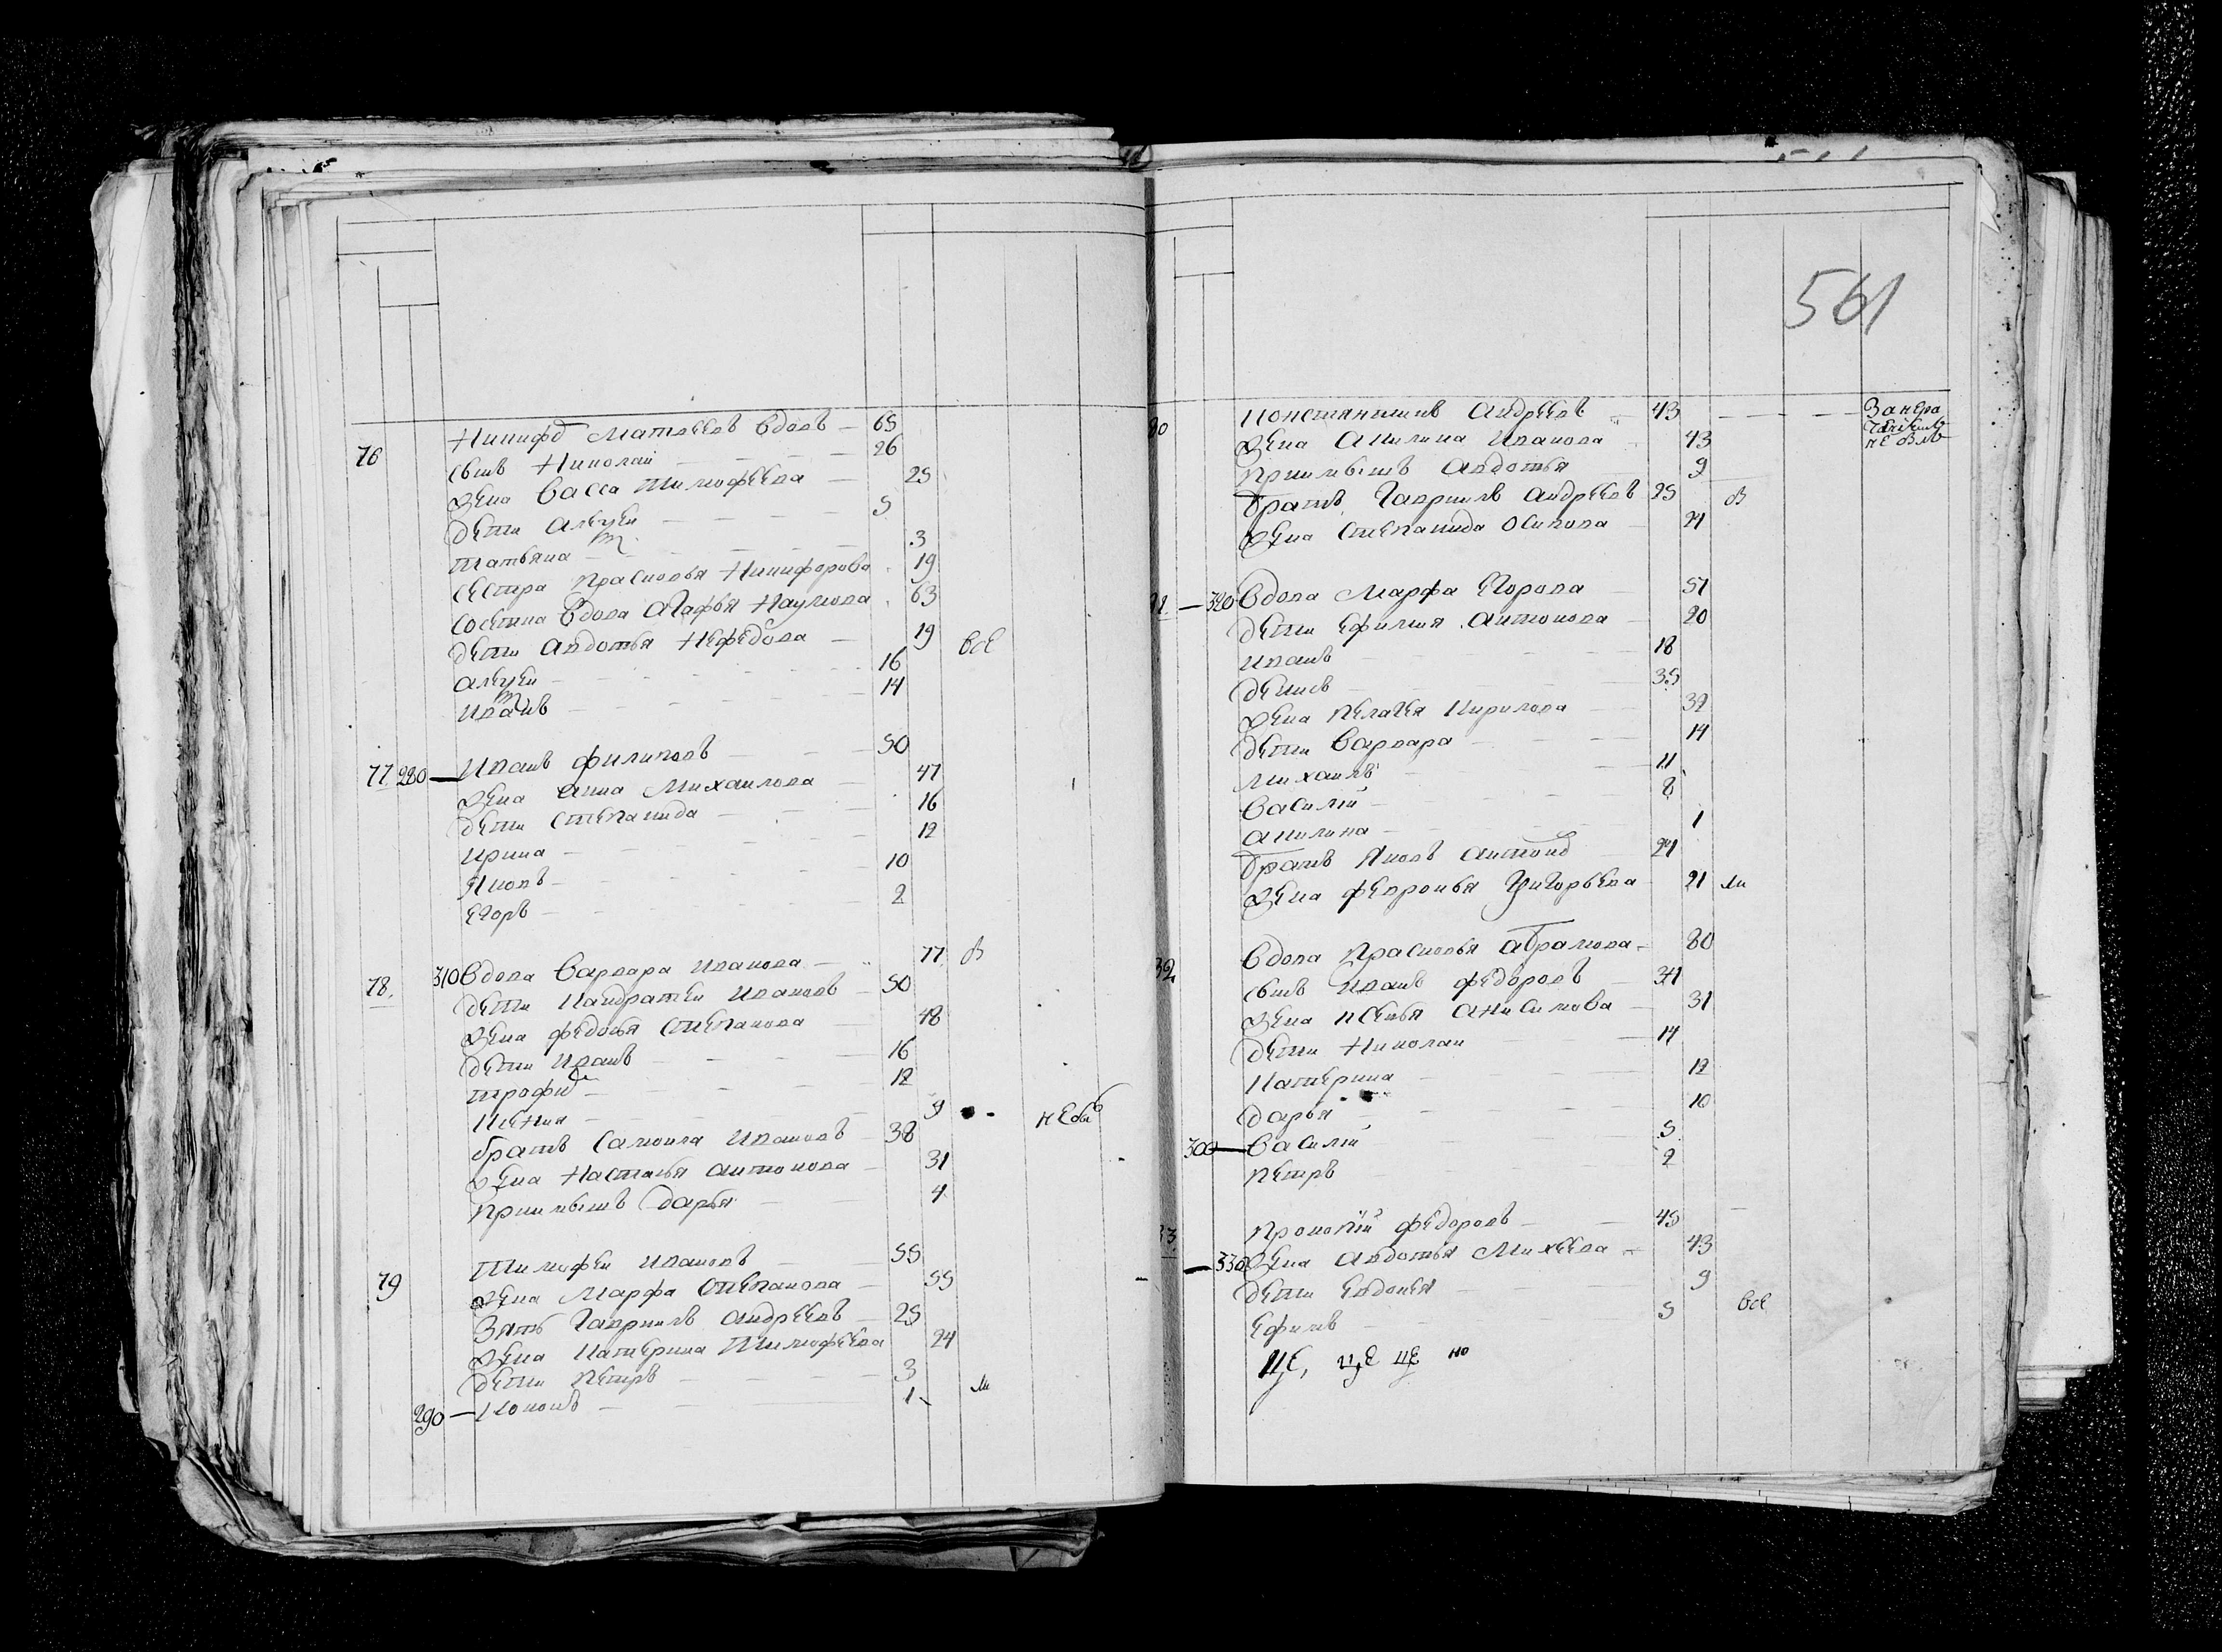 76 Никифо͏р Матвеевъ вдовъ — 65
сынъ Николай — 26
жена Васса Тимофеева — 25
дети Алексей — 5
Татьяна — 3
сестра Прасковья Никифорова 19
вдова Агафья Наумова 63
дети Авдотья Нефедова — 19 все
Алексей — 16
Иванъ — 14
77 280 — Иванъ Филиповъ — 50
жена Анна Михаилова — 47
дети Степанида — 16
Ирина — 12
Яковъ — 10
Егоръ — 2
78. 310 Вдова Варвара Иванова — 77 в
дети Кандратей Ивановъ — 50
жена Федосья Степанова — 48
дети Иванъ — 16
Трофим — 12
Ксения — 9
братъ Самоила Ивановъ — 38 не бы
жена Настасья Антонова — 31
приимышъ Дарья — 4
79 Тимофей Ивановъ — 55
жена Марфа Степанова — 55
Зять Гавриилъ Андреевъ — 25
жена Катерина Тимофеева 24
дети Петръ — 3
290 — Кононъ — 1 ли
561
80 Констянтинъ Андреевъ — 43 — — — За нера
жена Акилина Иванова 43 не
приимышъ Авдотья 9
братъ Гавриилъ Андреевъ 25 в
жена Степанида Осипова — 24
— 320 Вдова Марфа Егорова — 57
дети Ефимия Антонова — 20
Иванъ — 18
Денисъ — 35
жена Пелагея Кирилова — 32
дети Варвара — 14
Михаилъ — 11
Василий — 8
Акилина — 1
братъ Яковъ Антонов 24
жена Февронья Григорьева 21 ли
32 Вдова Прасковья Абрамова — 80
сынъ Иванъ Федоровъ — 34
жена Ксенья Анисимова — 31
дети Николай — 14
Катерина — 12
Дарья — 10
300 — Василий — 5
Петръ — 2
33 Прокопий Федоровъ — 45
— 330 жена Авдотья Михеева — 43
дети Евдокея — 9
Ефимъ — 5 все
це, це це но